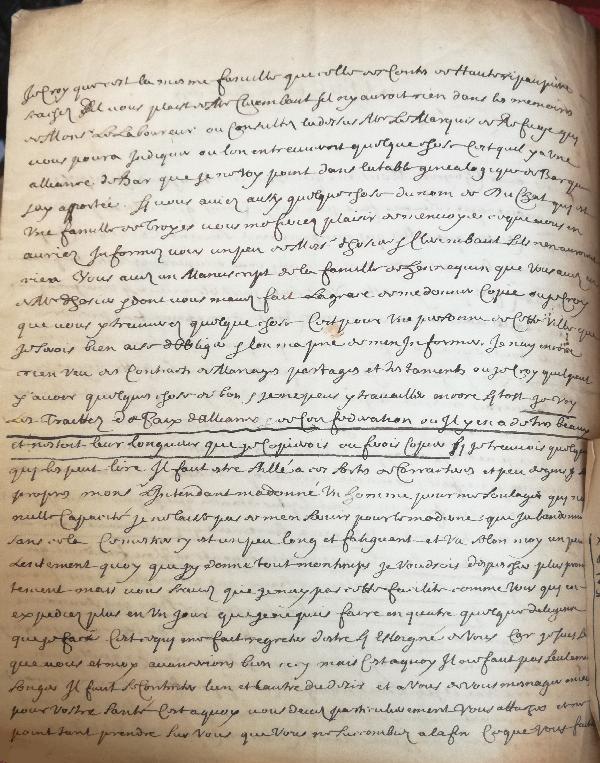 Je croy que c'est la mesme famille que celle des Contes de Hauteri
sil vous plaist de Mr Clairembaut sil ny auroit rien dans les memoires
de Mons. Le Laboureur ou Consulter la desus Mr Le Marquis de Refuge qui
vous poura Indiquer ou lon en trouveroit quelque chose Cest quil y a une
alliance de Bar que je ne voy point dans la table genealogique de Bar que
jay aportée. Si vous aviez aussy quelque chose du nom de Du Chat qui est
Une famille de Troyes vous me feriez plaisir de men ce que vous en
auriez Informez vous un peu de Mrs d'hosier et Clairembaut sils nen auroient
rien Vous avez un Manuscript de la famille de hennequin que vous avez eu
de Mr d'hosier dont vous mavez fait la grace de me donner Copie ou je croy
que vous trouverez quelque chose Cest pour Une personne de Cette Ville que
je serois bien aise dobliger lon ma prié de men Informer. Je nay encore
rien veu des Contracts de Mariages partages et testaments ou je croy quil peut
y avoir quelque chose de bon, je ne peux y travailler encore si tost je voy
Les Traittez de Paix d'alliance de Confederation ou Il y en a de tres beaux
et nestoit leur Longueur que je Copierois ou ferois Copier si je trouvois quelquun
qui les peut lire Il faut estre stillé a ces sorts de Caracteres et peu de gens y
propres mons. Lintendant madonné Un homme pour me soulager qui
nulle Capacité je ne laisse pas de men servir pour le moderne que jabandonne
sans cela Ce mestier cy est un peu long et fatiguant et va selon moy un peu
Lentement quoy que jy donne tout mon temps je voudrois despescher plus promp
tement mais vous scavez que je nay pas cette facilité comme vous qui en
expediez plus en Un jour que je ne puis faire en quatre quelque diligence
que je face Cest ce qui me fait regreter destre si Esloigné de Vous Car je suis
que vous et moy avancerions bien cecy mais Cest a quoy Il ne faut pas seulement
songer Il faut se Contenter lun et lautre du desir et a vous de vous mesnager
pour vostre santé Cest a quoy vous devez particulierement vous attacher et ne
point tant prendre sur vous que Vous ne succombiez a la fin Ce que vous